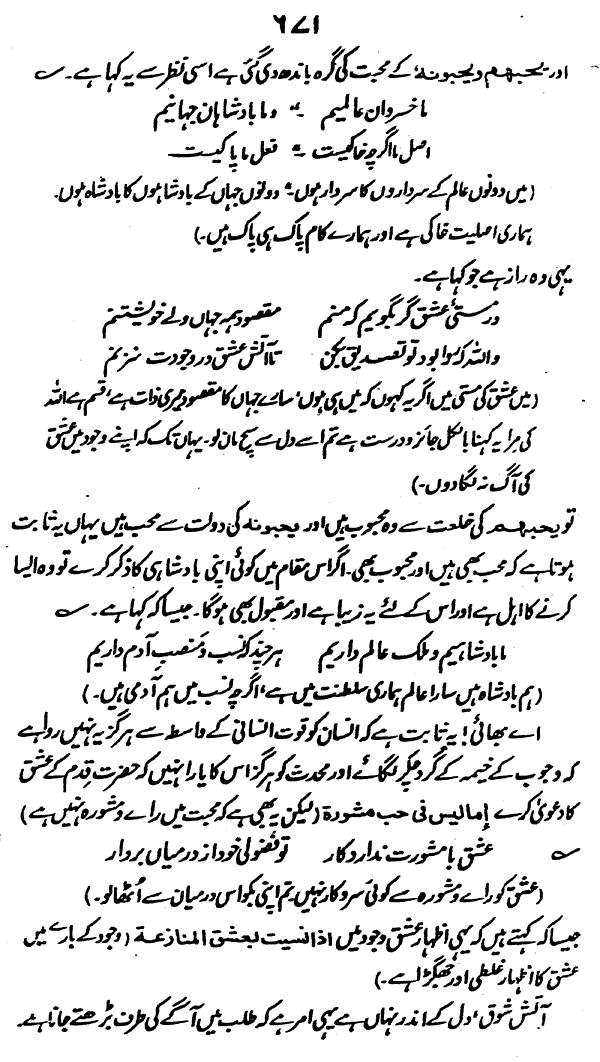 ۶۷۱
اور یحبہم ویحبونہ، کے محبت کی گرہ باندھ دی گئی ہے اسی نظر سے یہ کہا ہے۔ ؎
ما خسروان عالمیم ؞ وما بادشاہان جہانیم
اصل ما اگرچہ خاکیست ؞ فعل ما پاکیست
(میں دونوں عالم کے سرداروں کا سردار ہوں۔ دونوں جہاں کے بادشاہوں کا بادشاہ ہوں۔
ہماری اصلیت خاکی ہے اور ہمارے کام پاک ہی پاک ہیں۔)
یہی وہ راز ہے جو کہا ہے۔
در مستیٔ عشق گر بگویم کہ منم مقصود ہمہ جہاں ولے خویشتنم
واللہ کہ روا بود تو تصدیق بکن تا آتش عشق در وجودت نزنم
(میں عشق کی مستی میں اگر یہ کہوں کہ میں ہی ہوں، سارے جہاں کا مقصود میری ذات ہے، قسم ہے اللہ
کی مرا یہ کہنا بالکل جائز و درست ہے تم اسے دل سے سچ مان لو۔ یہاں تک کہ اپنے وجود میں عشق
کی آگ نہ لگا دوں۔)
تو یحبہم کی خلعت سے وہ محبوب ہیں اور یحبونہ کی دولت سے محب ہیں یہاں یہ ثابت
ہوتا ہے کہ محب بھی ہیں اور محبوب بھی۔ اگر اس مقام میں کوئی اپنی بادشاہی کا ذکر کرے تو وہ ایسا
کرنے کا اہل ہے اور اس کے لئے یہ زیبا ہے اور مقبول بھی ہوگا۔ جیسا کہ کہا ہے۔ ؎
ما بادشاہیم و ملک عالم داریم ہر چند کہ نسب و منصب آدم داریم
(ہم بادشاہ ہیں سارا عالم ہماری سلطنت میں ہے، اگرچہ نسب میں ہم آدمی ہیں۔)
اے بھائی! یہ ثابت ہے کہ انسان کو قوت انسانی کے واسطہ سے ہرگز یہ نہیں روا ہے
کہ وجوب کے خیمہ کے گرد چکر لگائے اور محدث کو ہرگز اس کا یارا نہیں کہ حضرت قدم کے عشق
کا دعویٰ کرے إما لیس فی حب مشورۃ (لیکن یہ بھی ہے کہ محبت میں رائے و مشورہ نہیں ہے)
؎ عشق با مشورت ندارد کار تو فضولی خود از درمیاں بردار
(عشق کو رائے و مشورہ سے کوئی سروکار نہیں تم اپنی بکواس درمیان سے اُٹھا لو۔)
جیسا کہ کہتے ہیں کہ یہی اظہار عشق وجود میں اذا نسیت لعشق المنازعۃ (وجود کے بارے میں
عشق کا اظہار غلطی اور جھگڑا ہے۔)
آتش شوق، دل کے اندر نہاں ہے یہی امر ہے کہ طلب میں آگے کی طرف بڑھتے جانا ہے۔